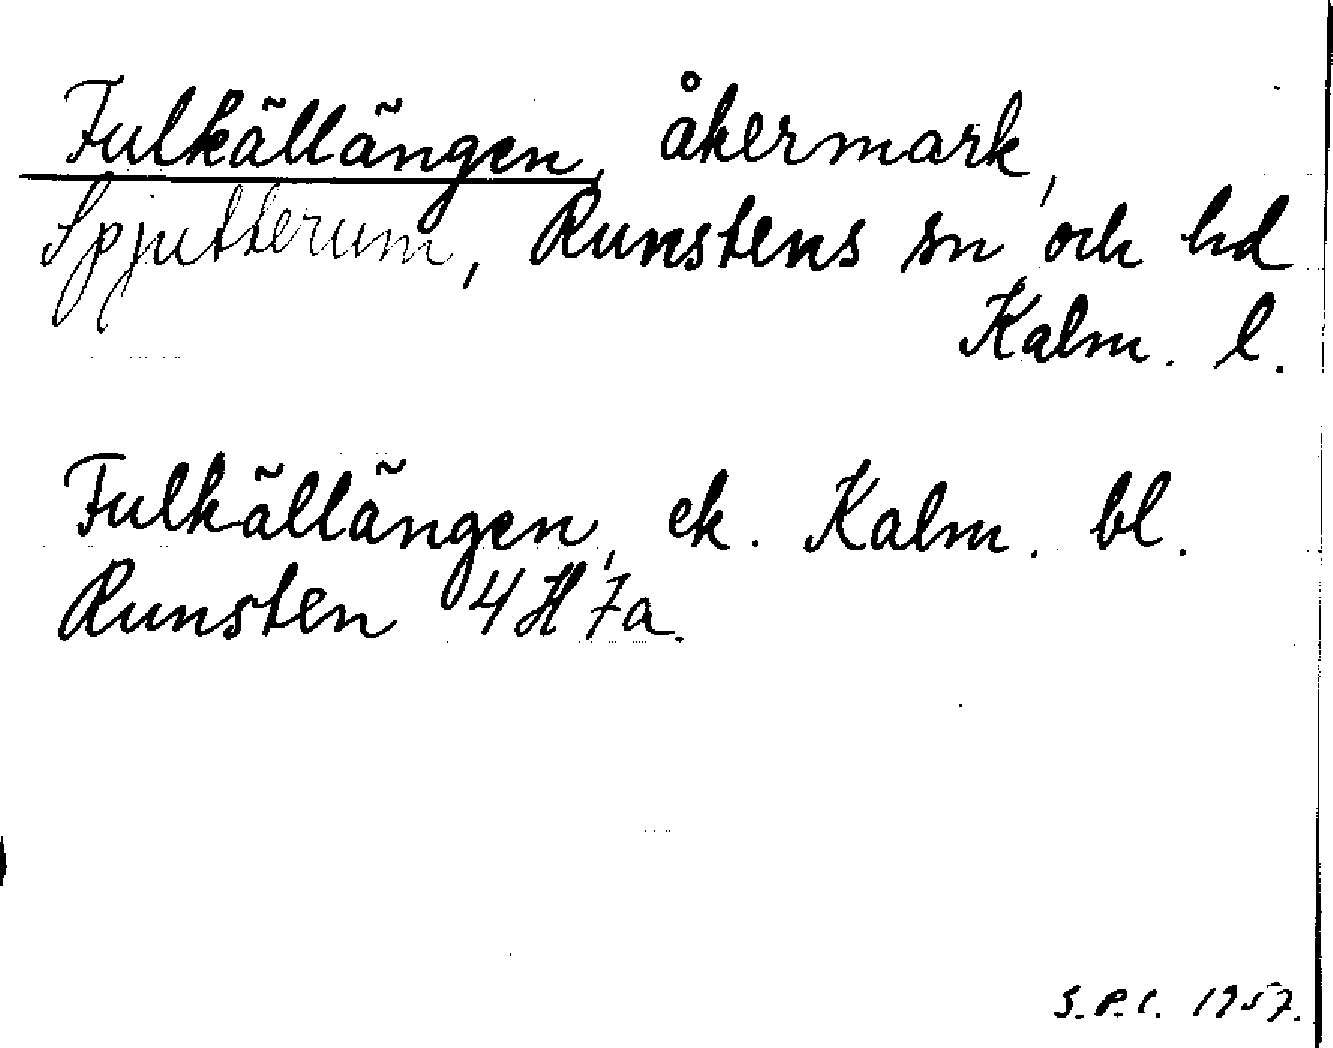 Fulkällängen, åkermark,
Spjutterum, Runstens sn och hd
Kalm. l.
Fulkällängen, ek. Kalm. bl.
Runsten 4 H 7a.
S.P.C. 1957.